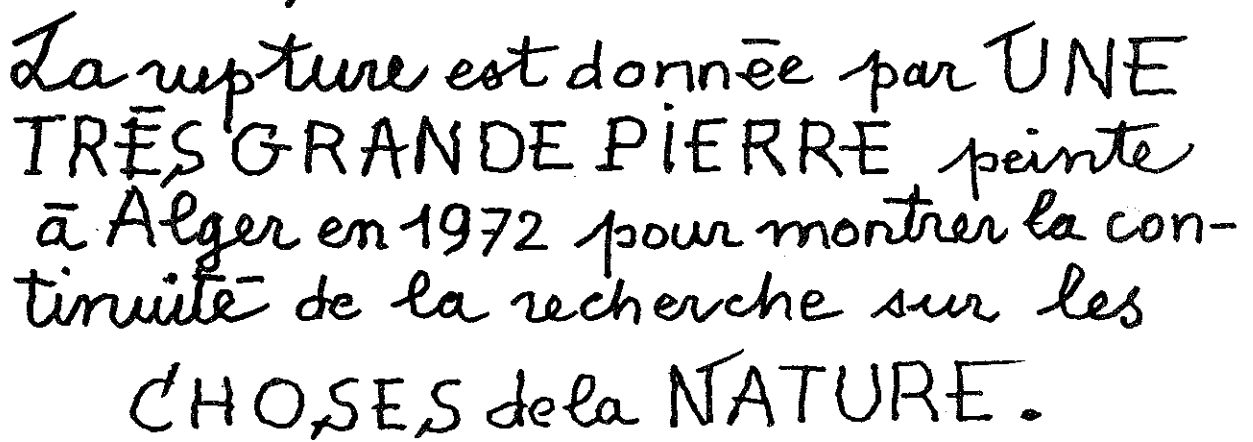 La rupture est donnée par UNE
TRÈS GRANDE PIERRE peinte
à Alger en 1972 pour montrer la con-
tinuité de la recherche sur les
CHOSES de la NATURE.